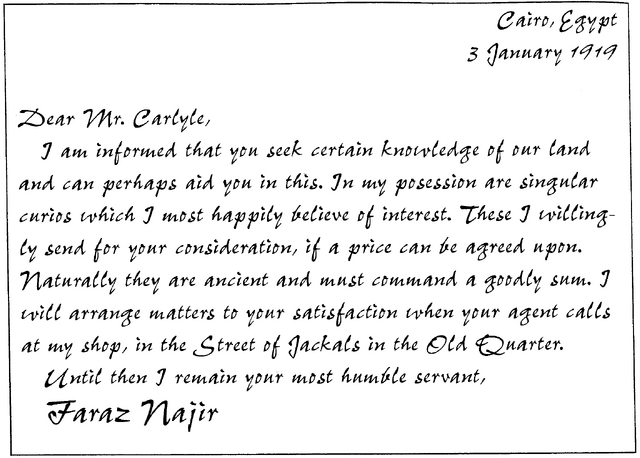 Cairo, Egypt
3 January 1919
Dear Mr. Carlyle,
I am informed that you seek certain knowledge of our land
and can perhaps aid you in this. In my posession are singular
curios which I most happily believe of interest. These I willing-
ly send for your consideration, if a price can be agreed upon.
Naturally they are ancient and must command a goodly sum. I
will arrange matters to your satisfaction when your agent calls
at my shop, in the Street of Jackals in the Old Quarter.
Until then I remain your most humble servant,
Faraz Najir